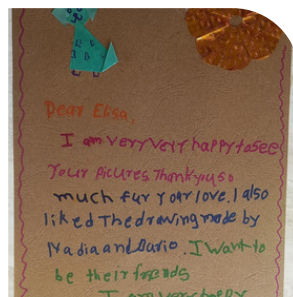 Dear Elisa,
I am very very happy to see
Your picures. Thank you so
much fur your love. I also
liked The drawing made by
Nadia and Dario. I want to
be their friends
I am very happy